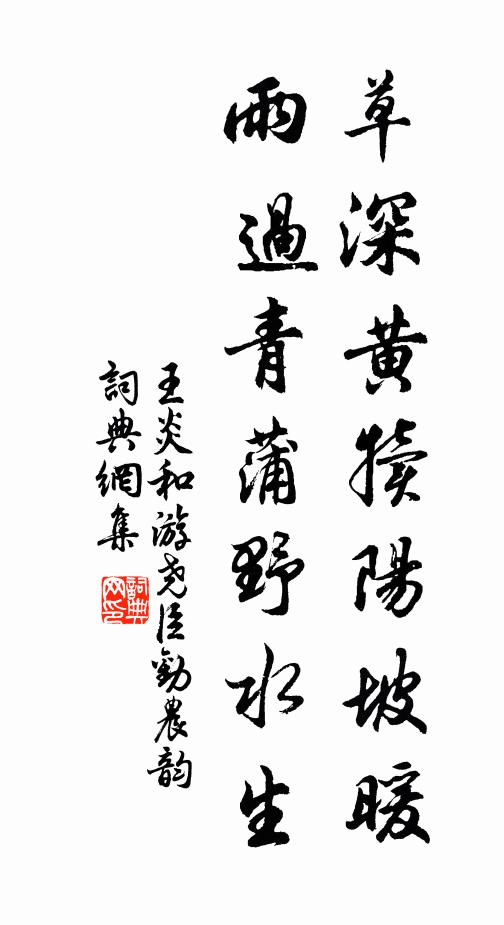 草深黄犢陽坡暖
雨過青蒲野水生
王炎和游堯臣勸農韵
詞典網集
詞典
网印